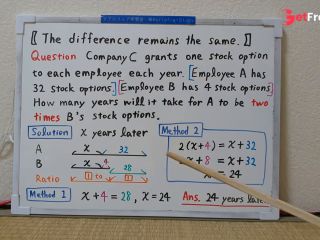 〖 The difference remains the same. 〗
Question Company C grants one stock option
to each employee each year. [Employee A has
32 stock options] [Employee B has 4 stock options]
How many years will it take for A to be two
times B's stock options.
Solution x years later
A x 32
B x 4 28
Ratio 1 to 1
Method 1 x + 4 = 28, x = 24
Method 2
2(x+4) = x + 32
x + 8 = x + 32
x = 24
Ans. 24 years later
GetFre